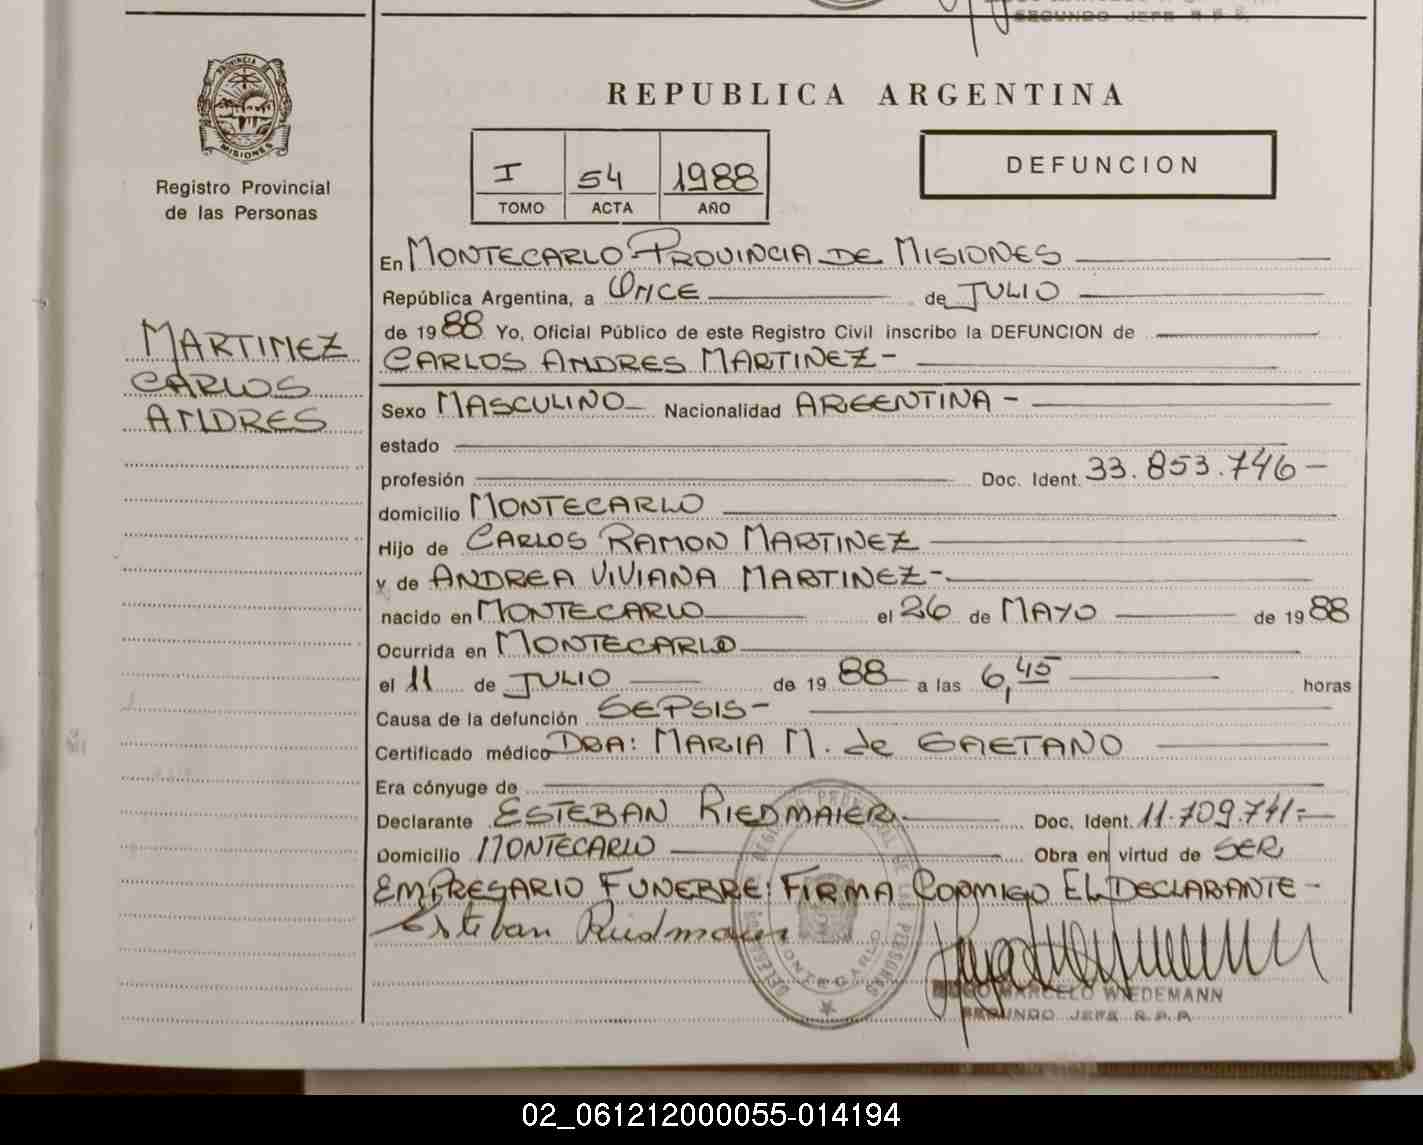 SEGUNDO JEFE R.P.P.
PROVINCIA DE
MISIONES
Registro Provincial
de las Personas
REPUBLICA ARGENTINA
I 54 1988
TOMO ACTA AÑO
DEFUNCION
En MONTECARLO PROVINCIA DE MISIONES
República Argentina, a ONCE de JULIO
de 1988 Yo, Oficial Público de este Registro Civil inscribo la DEFUNCION de
CARLOS ANDRES MARTINEZ-
MARTINEZ
CARLOS
ANDRES
Sexo MASCULINO Nacionalidad ARGENTINA -
estado
profesión Doc. Ident. 33.853.746-
domicilio MONTECARLO
Hijo de CARLOS RAMON MARTINEZ
y de ANDREA VIVIANA MARTINEZ-
nacido en MONTECARLO el 26 de MAYO de 1988
Ocurrida en MONTECARLO
el 11 de JULIO de 1988 a las 6,45 horas
Causa de la defunción SEPSIS-
Certificado médico DRA: MARIA M. de GAETANO
Era cónyuge de
Declarante ESTEBAN RIEDMAIER Doc. Ident. 11.709.741-
Domicilio MONTECARLO Obra en virtud de SER
EMPRESARIO FUNEBRE: FIRMA CONMIGO EL DECLARANTE-
Esteban Riedmaier
MONTECARLO
HUGO MARCELO WIEDEMANN
SEGUNDO JEFE R.P.P.
02_061212000055-014194